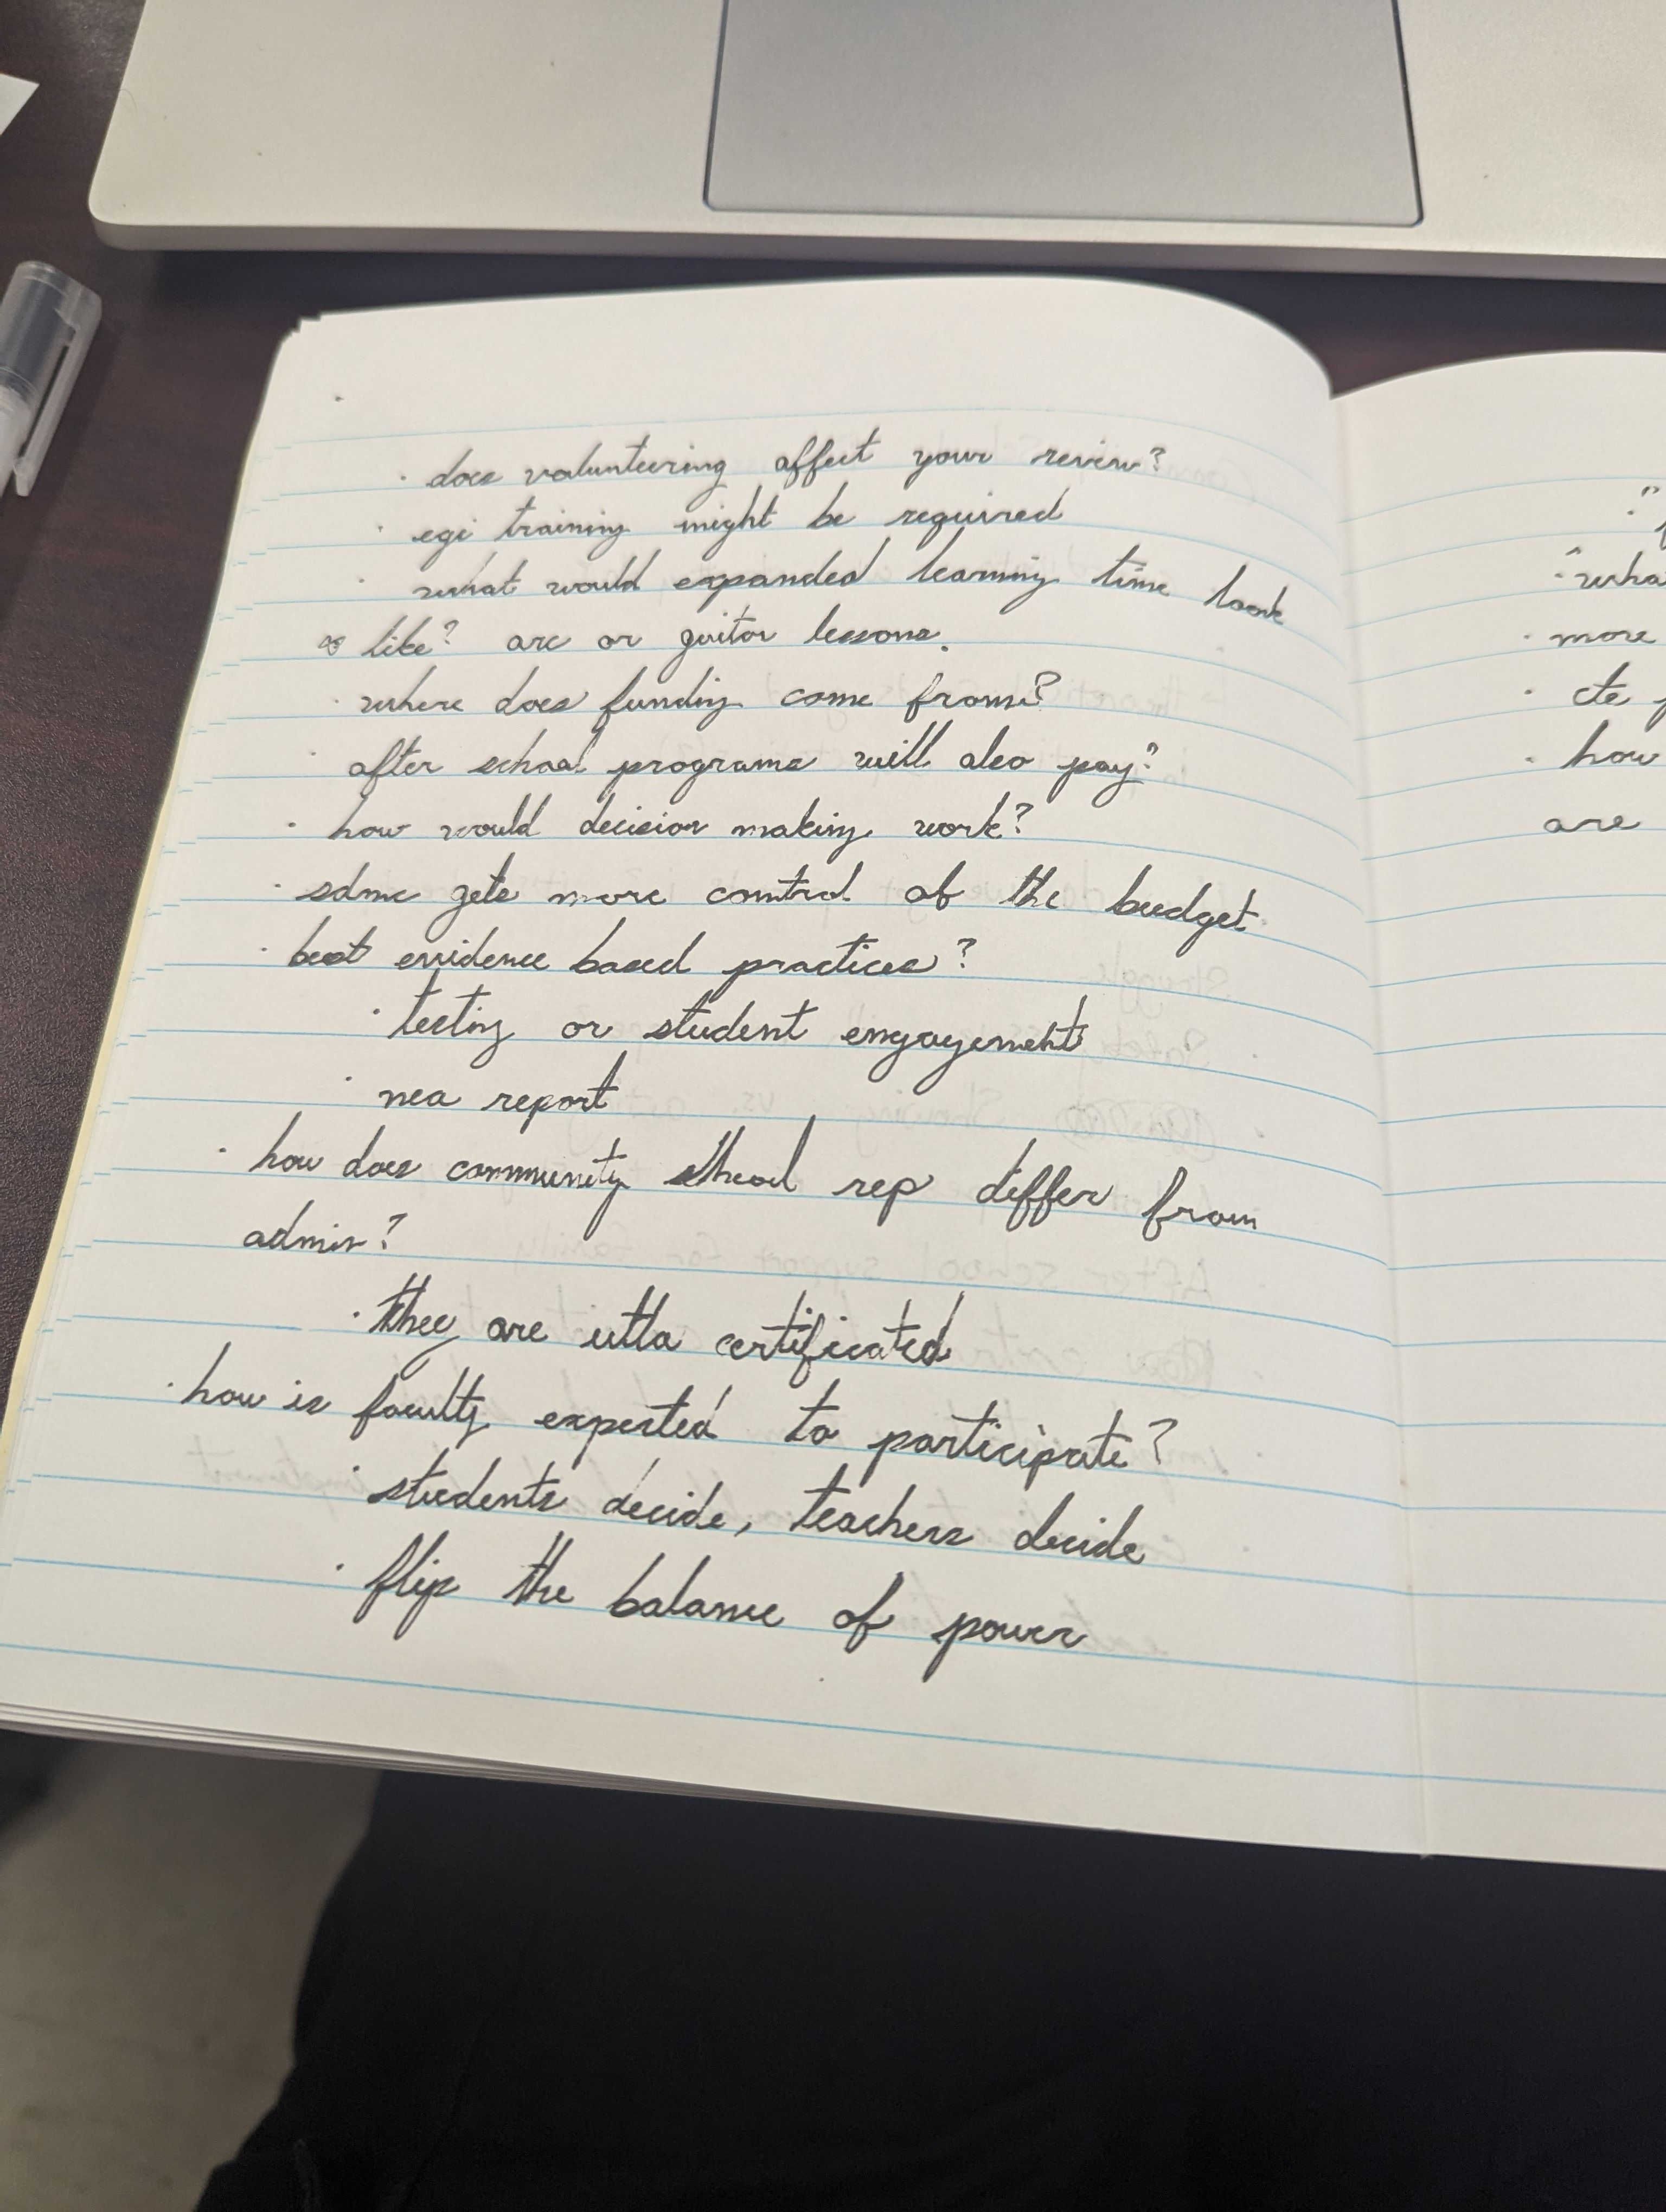 · does volunteering affect your review?
· egi training might be required
· what would expanded learning time look
like? arc or guitar lessons.
· where does funding come from?
· after school programs will also pay?
· how would decision making work?
· sdmc gets more control of the budget.
· best evidence based practices?
· testing or student engagement
· nea report
· how does community school rep differ from
admin?
· they are utla certificated
· how is faculty expected to participate?
· students decide, teachers decide
· flip the balance of power
· more
· cte
· how
are